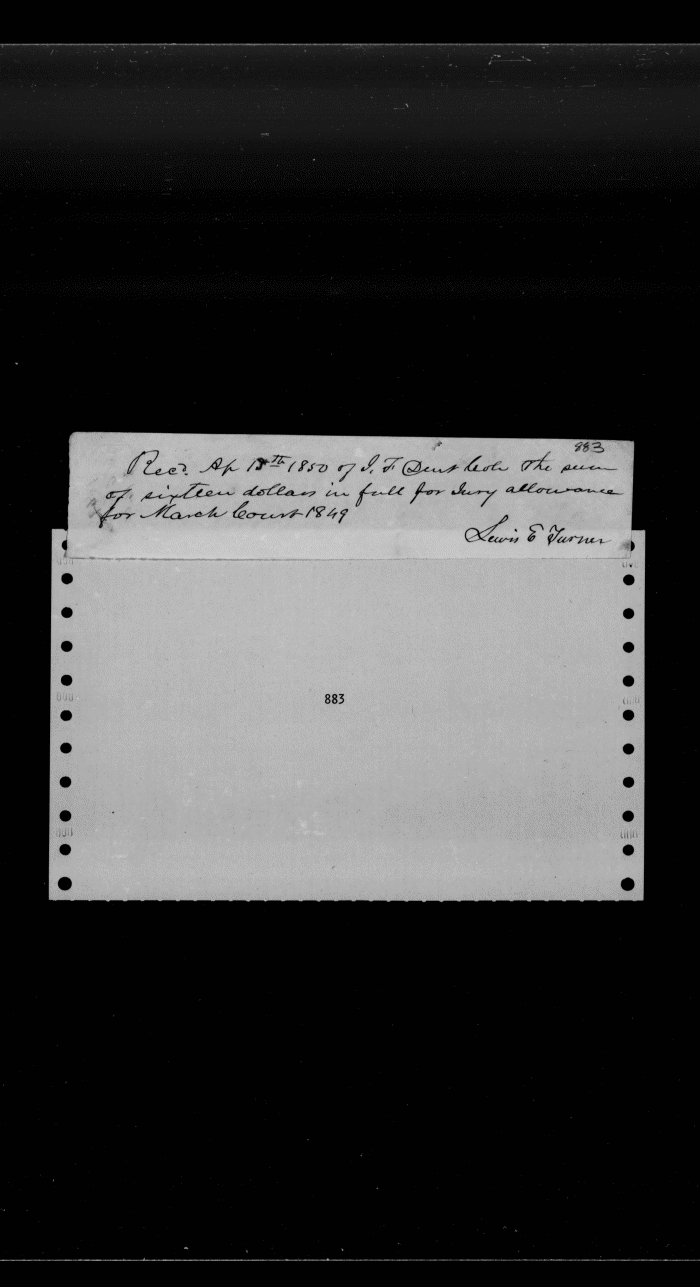 983
Recd. Ap 15th 1850 of J. F Dent Colr the sum
of sixteen dollars in full for Jury allowance
for March Court 1849
Lewis E Turner
883